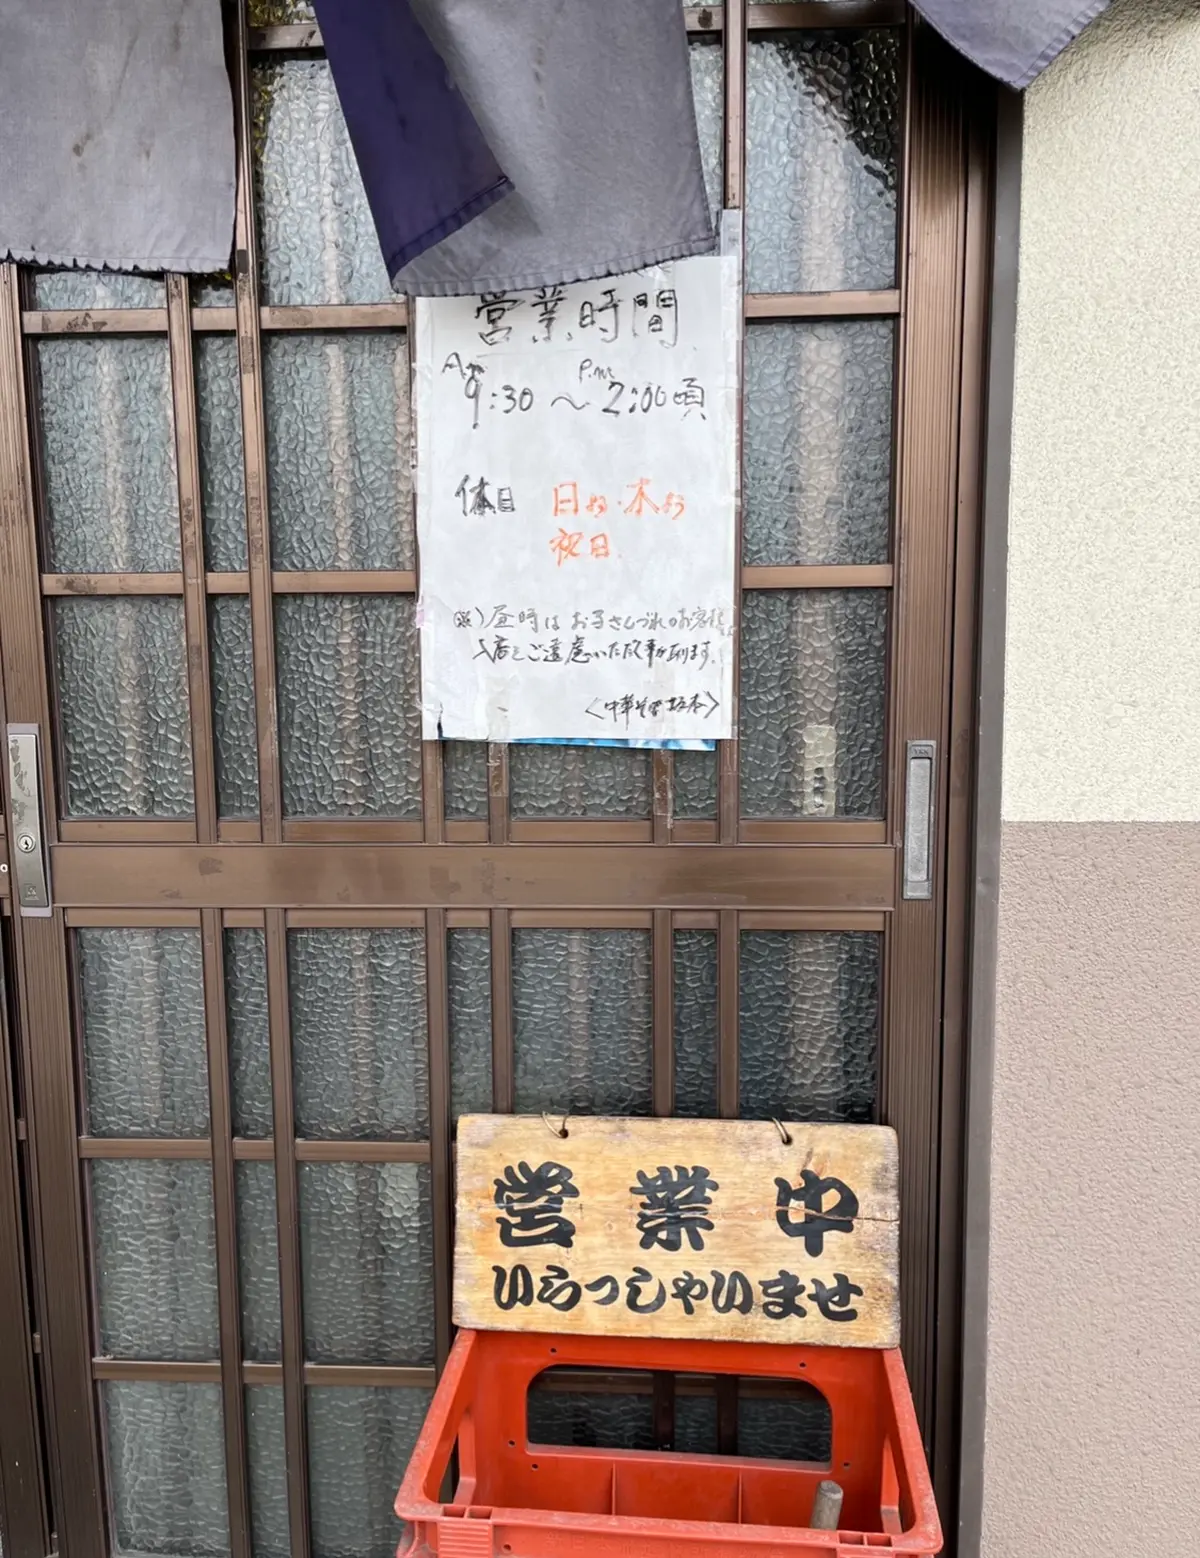 営業時間
A.m P.m
9:30〜2:00頃
休日 日よう・木よう
祝日
昼時はお子さんづれのお客様
入店をご遠慮いただく事が有ります。
<中華そば 坂本>
営業中
いらっしゃいませ